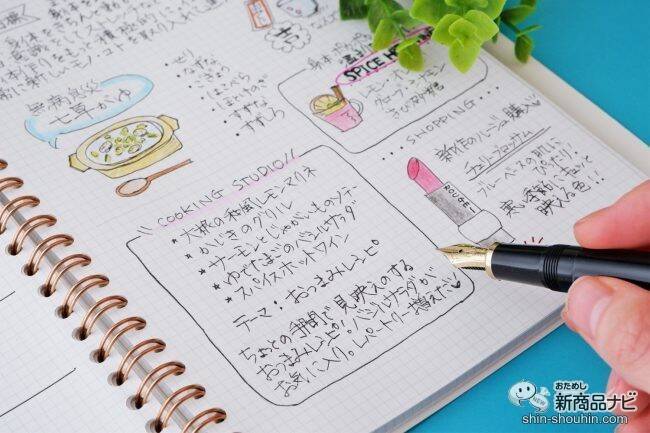 無病息災
七草がゆ
・せり
・なずな
・ごぎょう
・はこべら
・ほとけのざ
・すずな
・すずしろ
SPICE H
レモン・オレンジ
クローブ・シナモン
きび砂糖
SHOPPING
新作のルージュ購入♡
チェリーブロッサム
ブルーベースの肌に
ぴったり!
寒い季節にキュッと
映える色!!
ROUGE
COOKING STUDIO!!
★大根の和風レモンマリネ
★かじきのグリル
★サーモンとじゃがいものソテー
★ゆでたまごのバジルサラダ
★スパイスホットワイン
テーマ:おつまみレシピ
ちょっとの手間で見映えのする
おつまみレシピ!バジルサラダが
お気に入り。レパートリー増えた♡
おためし
新商品ナビ
NEW
shin-shouhin.com